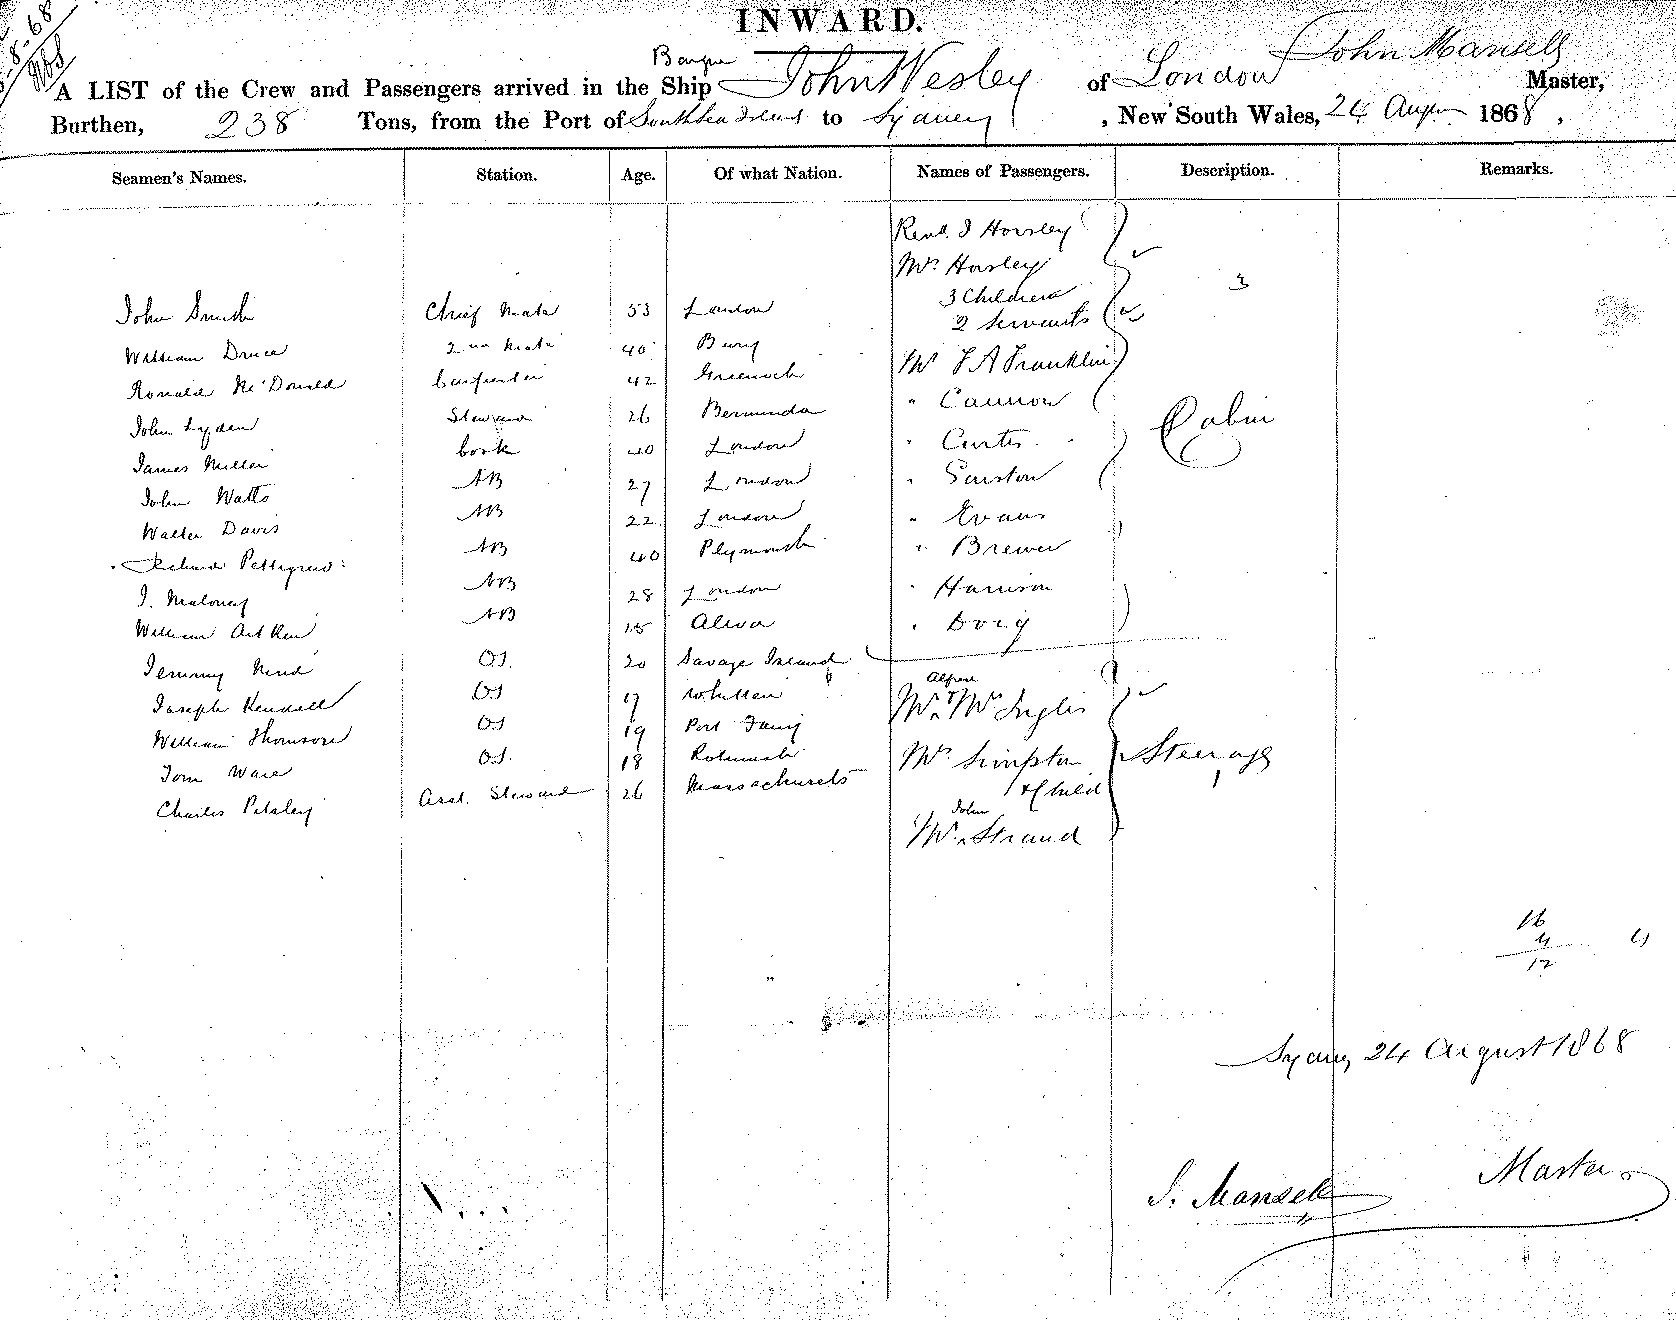 INWARD.
Barque
John Mansell
A LIST of the Crew and Passengers arrived in the Ship John Wesley of London Master,
Burthen, 238 Tons, from the Port of South Sea Island to Sydney, New South Wales, 24 Augus 1868,
Seamen's Names. Station. Age. Of what Nation. Names of Passengers. Description. Remarks.
Revd. J Horsley
Mrs Horsley
3 Children 3
John Smith Chief Mate 53 London
2 Servants
William Druce 2nd Mate 40 Bury Mr F A Franklin
Ronald McDonald Carpenter 42 Greenock
John Lyden Steward 26 Bermuda " Cannon Cabin
James Miller Cook 40 London " Curtis
John Watts AB 27 London "
Walter Davis AB 22 London " Evans
Richard Pettigrew AB 40 Plymouth " Brewer
J. Maloney AB 28 London " Harrison
William Aitken AB Alloa "
Jemmy OS. 20 Savage Island
Alfred
Joseph Kendall OS 17 Mr & Mrs Inglis
William Thomson OS 19
Tom Ware OS. 18 Rotumah Mrs Simpson Steerage
Charles Asst. Steward 26 Massachusets & Child
John
Mr Strand
16
4
12
Sydney 24 August 1868
J. Mansell Master